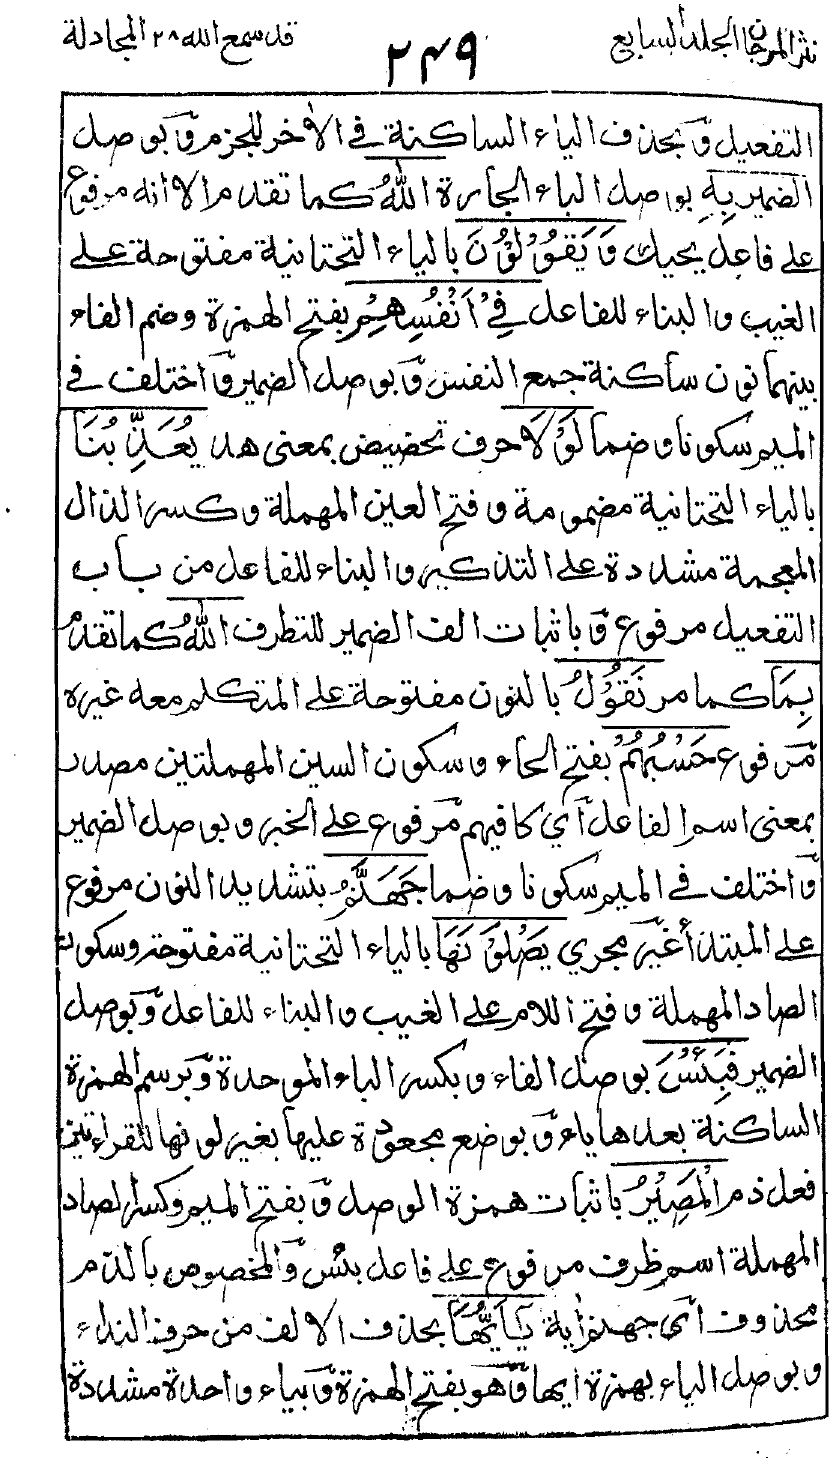 نثر المرجان الجلد السابع
٢٤٩
قد سمع الله ٢٨ المجادلة
التفعيل وَبحذف الياء الساكنة في الاٰخر للجزم وَبوصل
الضمير بِهِ بوصل الباء الجارة اللهُ كما تقدم الا انه مرفوع
على فاعل يحيك وَيَقُوْلُوْنَ بالياء التحتانية مفتوحة على
الغيب والبناء للفاعل فِيْ اَنْفُسِهِمْ بفتح الهمزة وضم الفاء
بينهما نون ساكنة جمع النفس وَبوصل الضمير وَاختلف في
الميم سكونا وضما لَوْلَا حرف تحضيض بمعنى هلا يُعَذِّبُنَا
بالياء التحتانية مضمومة وفتح العين المهملة وكسر الذال
المعجمة مشددة على التذكير والبناء للفاعل من باب
التفعيل مرفوع وَباثبات الف الضمير للتطرف اللهُ كما تقدم
بِمَا كما مر نَقُوْلُ بالنون مفتوحة على المتكلم معه غيره
مَرفوع حَسْبُهُمْ بفتح الحاء وسكون السين المهملتين مصدر
بمعنى اسم الفاعل اَي كافيهم مَرفوع على الخبر وبوصل الضمير
وَاختلف في الميم سكونا وضما جَهَنَّمُ بتشديد النون مرفوع
على المبتدأ غيرَ مجري يَصْلَوْنَهَا بالياء التحتانية مفتوحة وسكون
الصاد المهملة وفتح اللام على الغيب والبناء للفاعل وَبوصل
الضمير فَبِئْسَ بوصل الفاء وبكسر الباء الموحدة وَبرسم الهمزة
الساكنة بعدها ياء وَبوضع مجعودة عليها بغير لونها للقراءتين
فعل ذم الْمَصِيْرُ باثبات همزة الوصل وَبفتح الميم وكسر الصاد
المهملة اسم ظرف مرفوع على فاعل بئس وَالمخصوص بالذم
محذوف اَي جهنم اٰية يٰاَيُّهَا بحذف الالف من حرف النداء
وبوصل الياء بهمزة ايها وَهو بفتح الهمزة وَبياء واحدة مشددة